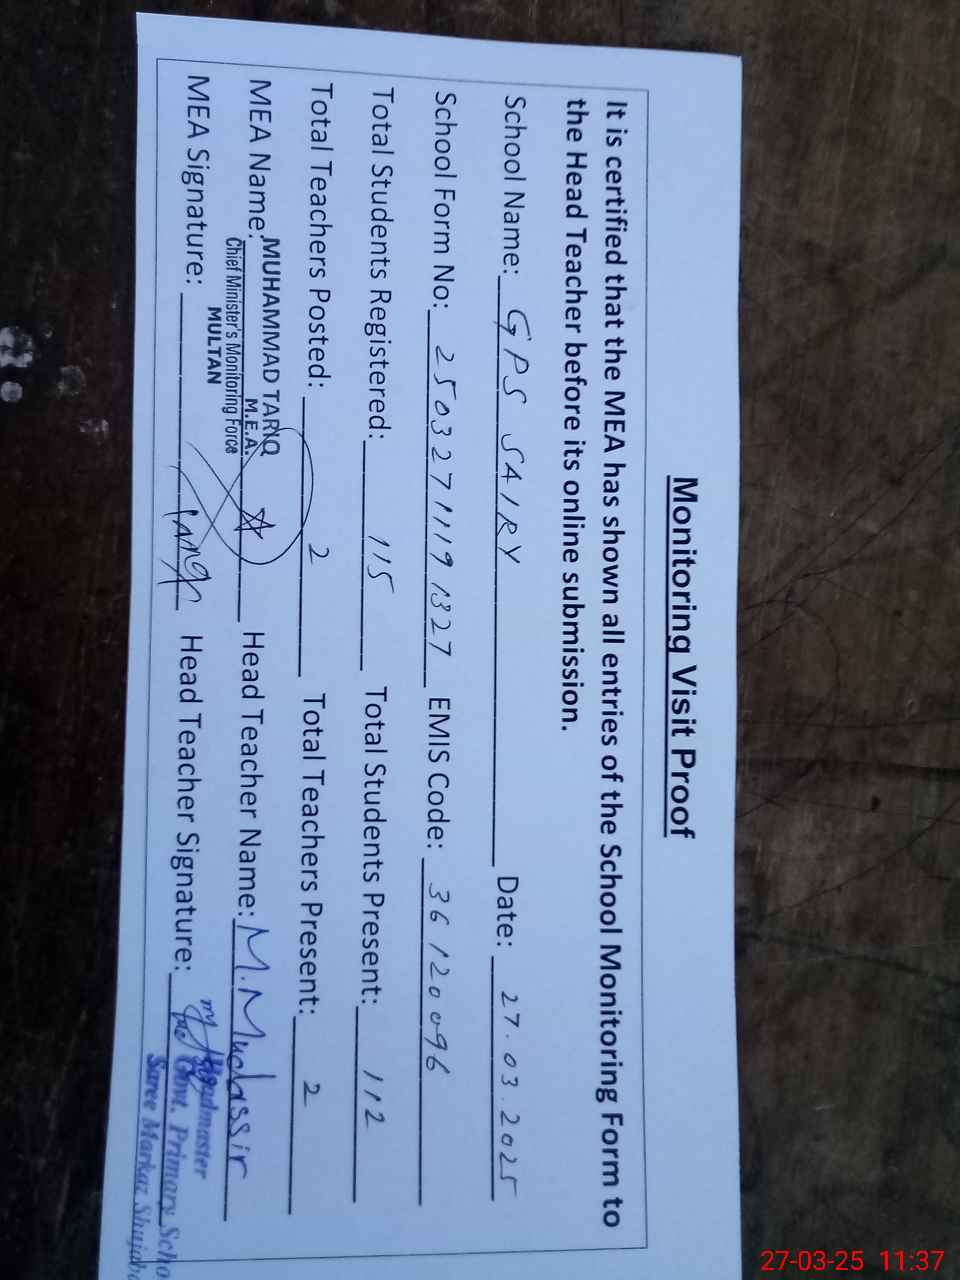 Monitoring Visit Proof
It is certified that the MEA has shown all entries of the School Monitoring Form to
the Head Teacher before its online submission.
School Name: GPS SAIRY Date: 27.03.2025
School Form No: 2503271119 1327 EMIS Code: 36120096
Total Students Registered: 115 Total Students Present: 112
Total Teachers Posted: 2 Total Teachers Present: 2
MEA Name: MUHAMMAD TARIQ Head Teacher Name: M. Mudassir
M.E.A.
Chief Minister's Monitoring Force
MULTAN
MEA Signature: Tariq Head Teacher Signature:
Headmaster
Govt. Primary Scho
Saree Markaz Shujab
27-03-25 11:37